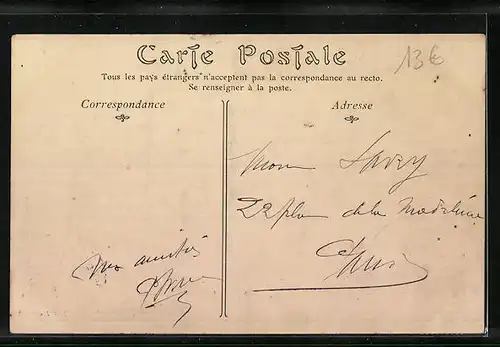 Carte Postale
13€
Tous les pays étrangers n'acceptent pas la correspondance au recto.
Se renseigner à la poste.
Correspondance
Adresse
Savry
22 pla de la Madeleine
Paris
amitiés